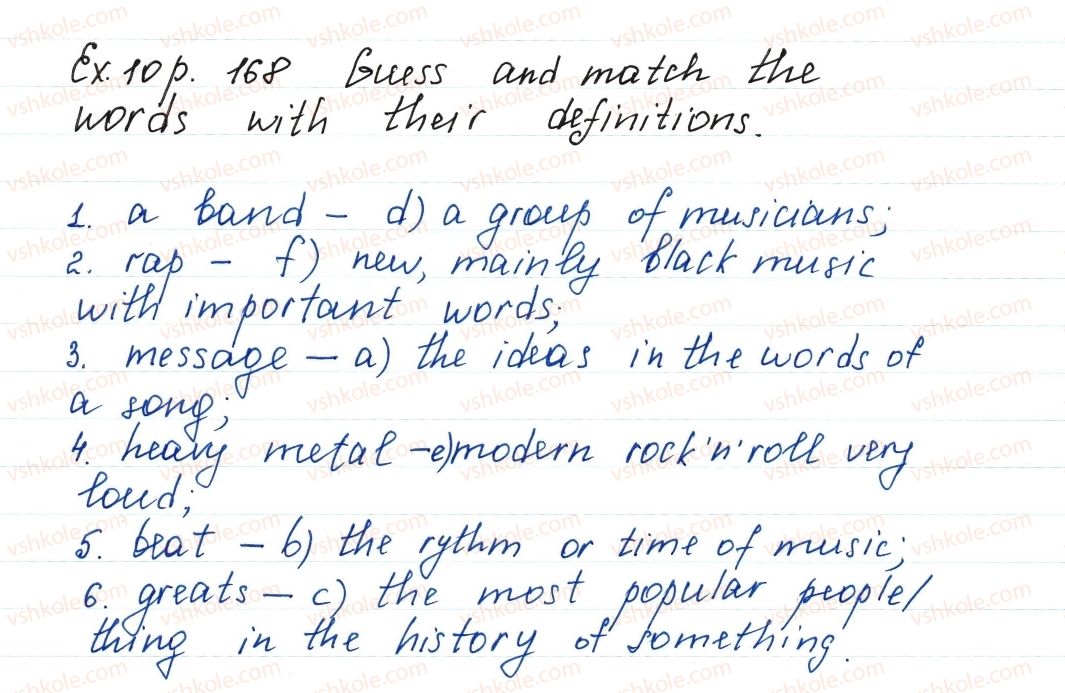 Ex. 10 p. 168 Guess and match the
words with their definitions.
1. a band – d) a group of musicians;
2. rap – f) new, mainly black music
with important words;
3. message – a) the ideas in the words of
a song;
4. heavy metal – e) modern rock'n'roll very
loud;
5. beat – b) the rythm or time of music;
6. greats – c) the most popular people/
thing in the history of something.